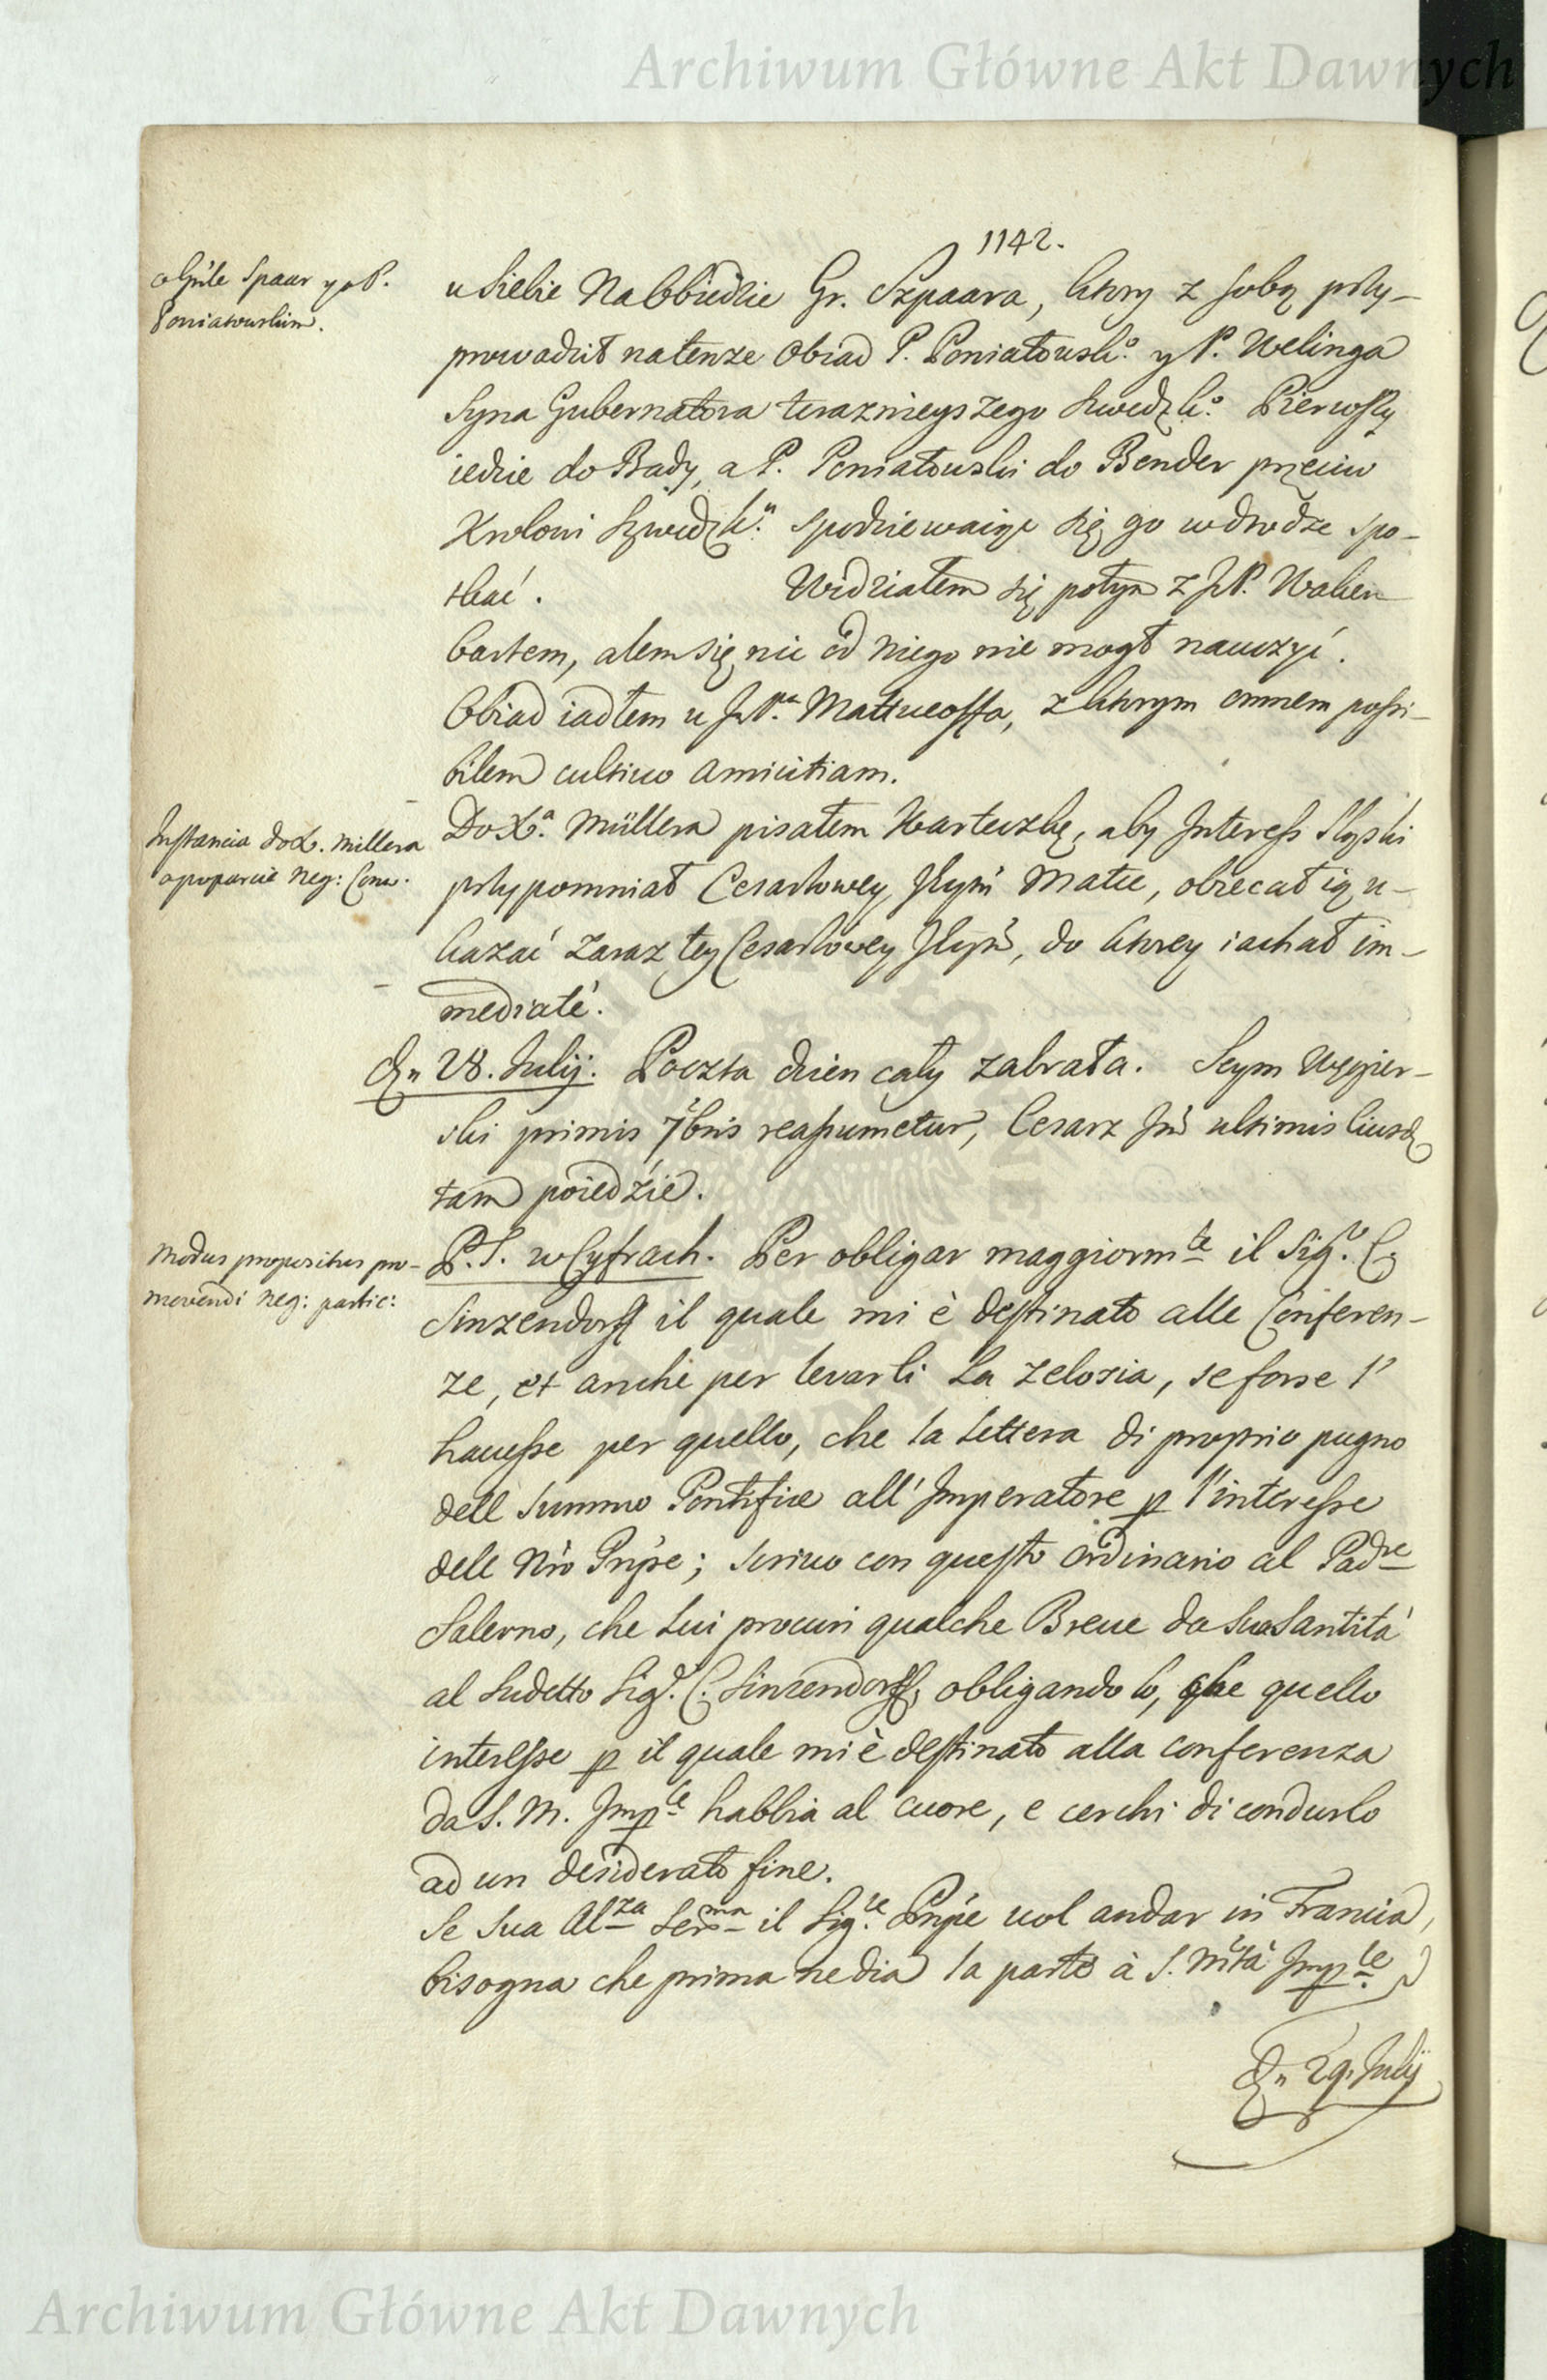 Archiwum Główne Akt Dawnych
1142.
o Gńle Spaar y o P.
Poniatowskim.
u siebie Na Obiedzie Gr. Szpaara, ktory z sobą przy-
prowadził na tenze Obiad P. Poniatowsk:º y P. Welinga
Syna Gubernatora teraznieyszego Szwedzk:º Pierwszy
iedzie do Bady, a P. Poniatowski do Bender przeciw
Krolowi Szwedzk:ᵘ spodziewaiąc się go w drodze spo-
tkać. Widziałem się potym z JP. Walien
bartem, alem się nic od niego nie mogł nauczyć.
Obiad iadłem u JP.ⁿᵃ Mattueoffa, z ktorym omnem possi-
bilem cultiuo amicitiam.
Instancia do X. Millera
o poparcie Neg: Conw.
Do X.ª Müllera pisałem Karteczkę, aby Interess Slyski
przypomniał Cesarzowey Jeyḿ Matce, obiecał ią u-
kazać zaraz tey Cesarzowey Jeyḿ, do ktorey iachał im-
mediaté.
Dn 28. Julij. Poczta dzien cały zabrała. Seym Węgier-
ski primis 7bris reassumetur, Cesarz Jḿ ultimis eiusd
tam poiedzie.
Modus propositus pro-
movendi Neg: partic:
P.S. w Cyfrach. Per obligar maggiorm.te il Sig.r C.
Sinzendorff il quale mi è destinato alle Conferen-
ze, et anche per levarli la zelosia, se forse l'
hauesse per quello, che la lettera di proprio pugno
dell Summo Pontifice all' Imperatore p l'interesse
dell Nro Prῆpe; scriuo con questo ordinario al Padre
Salerno, che lui procuri qualche Breue da Sua Santità
al sudetto Sig.r C. Sinzendorff, obligando lo, che quello
interesse p il quale mi è destinato alla conferenza
da S. M. Imp.le habbia al cuore, e cerchi di condurlo
ad un desiderato fine.
Se Sua Al.za Ser.ma il Sig.re Prῆpe uol andar in Francia,
bisogna che prima ne dia la parte à S. Mtà Imp.le
Dn 29. Julij
Archiwum Główne Akt Dawnych